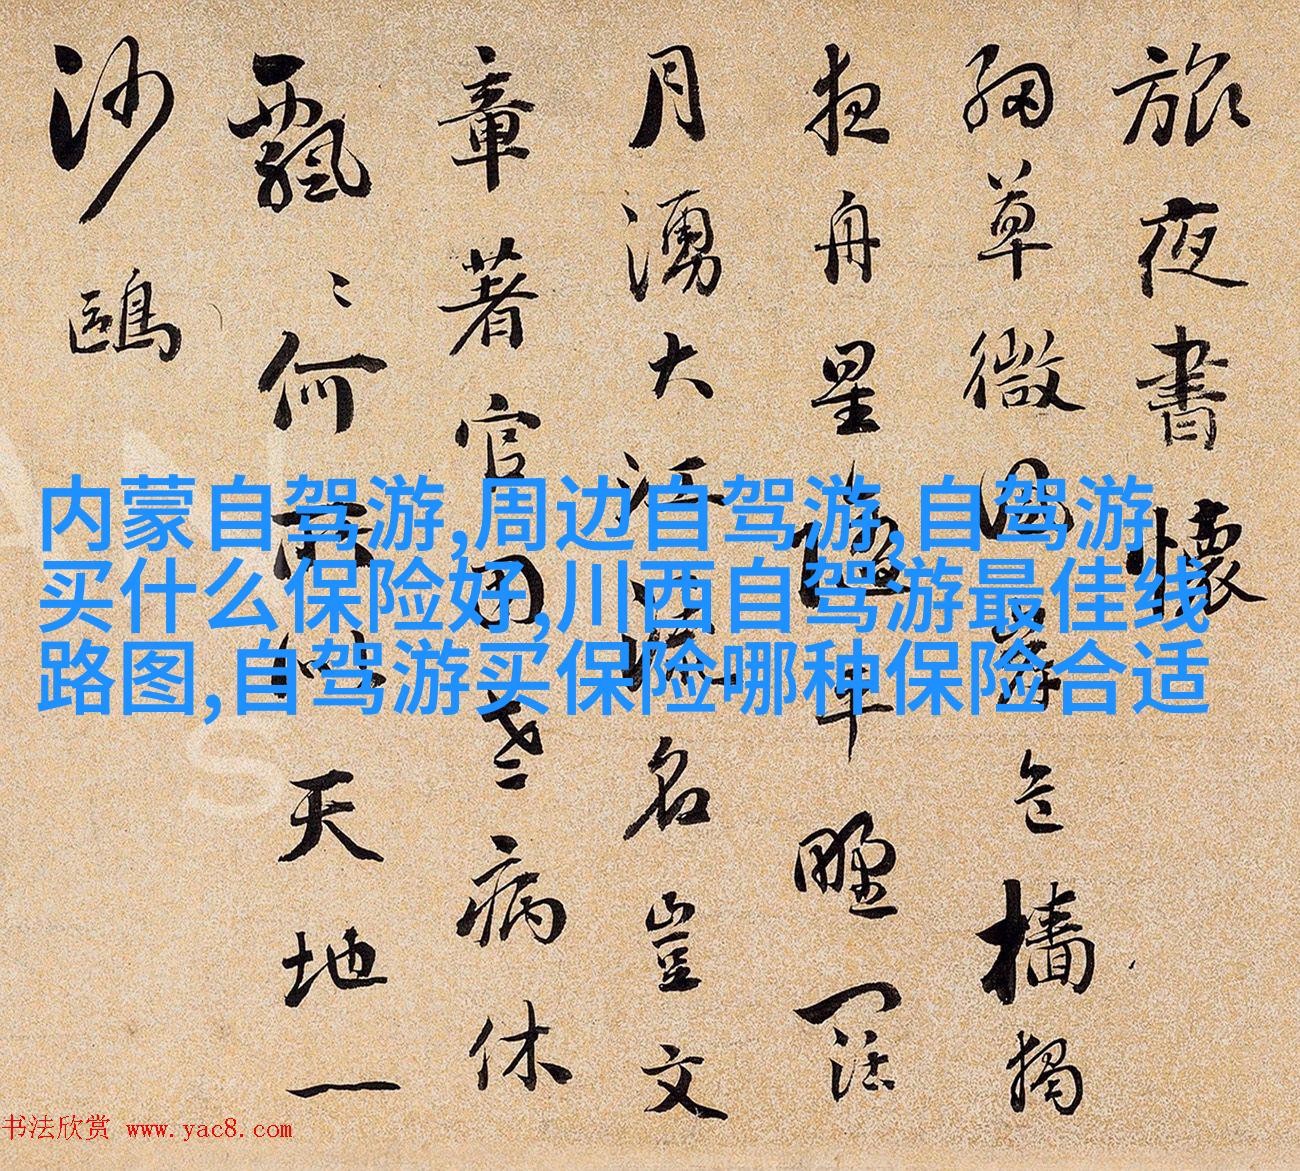 旅夜書懷
細草微風岸危檣獨
夜舟星隨平野闊
月湧大江流名豈文
章著官因老病休
飄〻何所似天地一
沙鷗
内蒙自驾游,周边自驾游,自驾游
买什么保险好,川西自驾游最佳线
路图,自驾游买保险哪种保险合适
书法欣赏 www.yac8.com